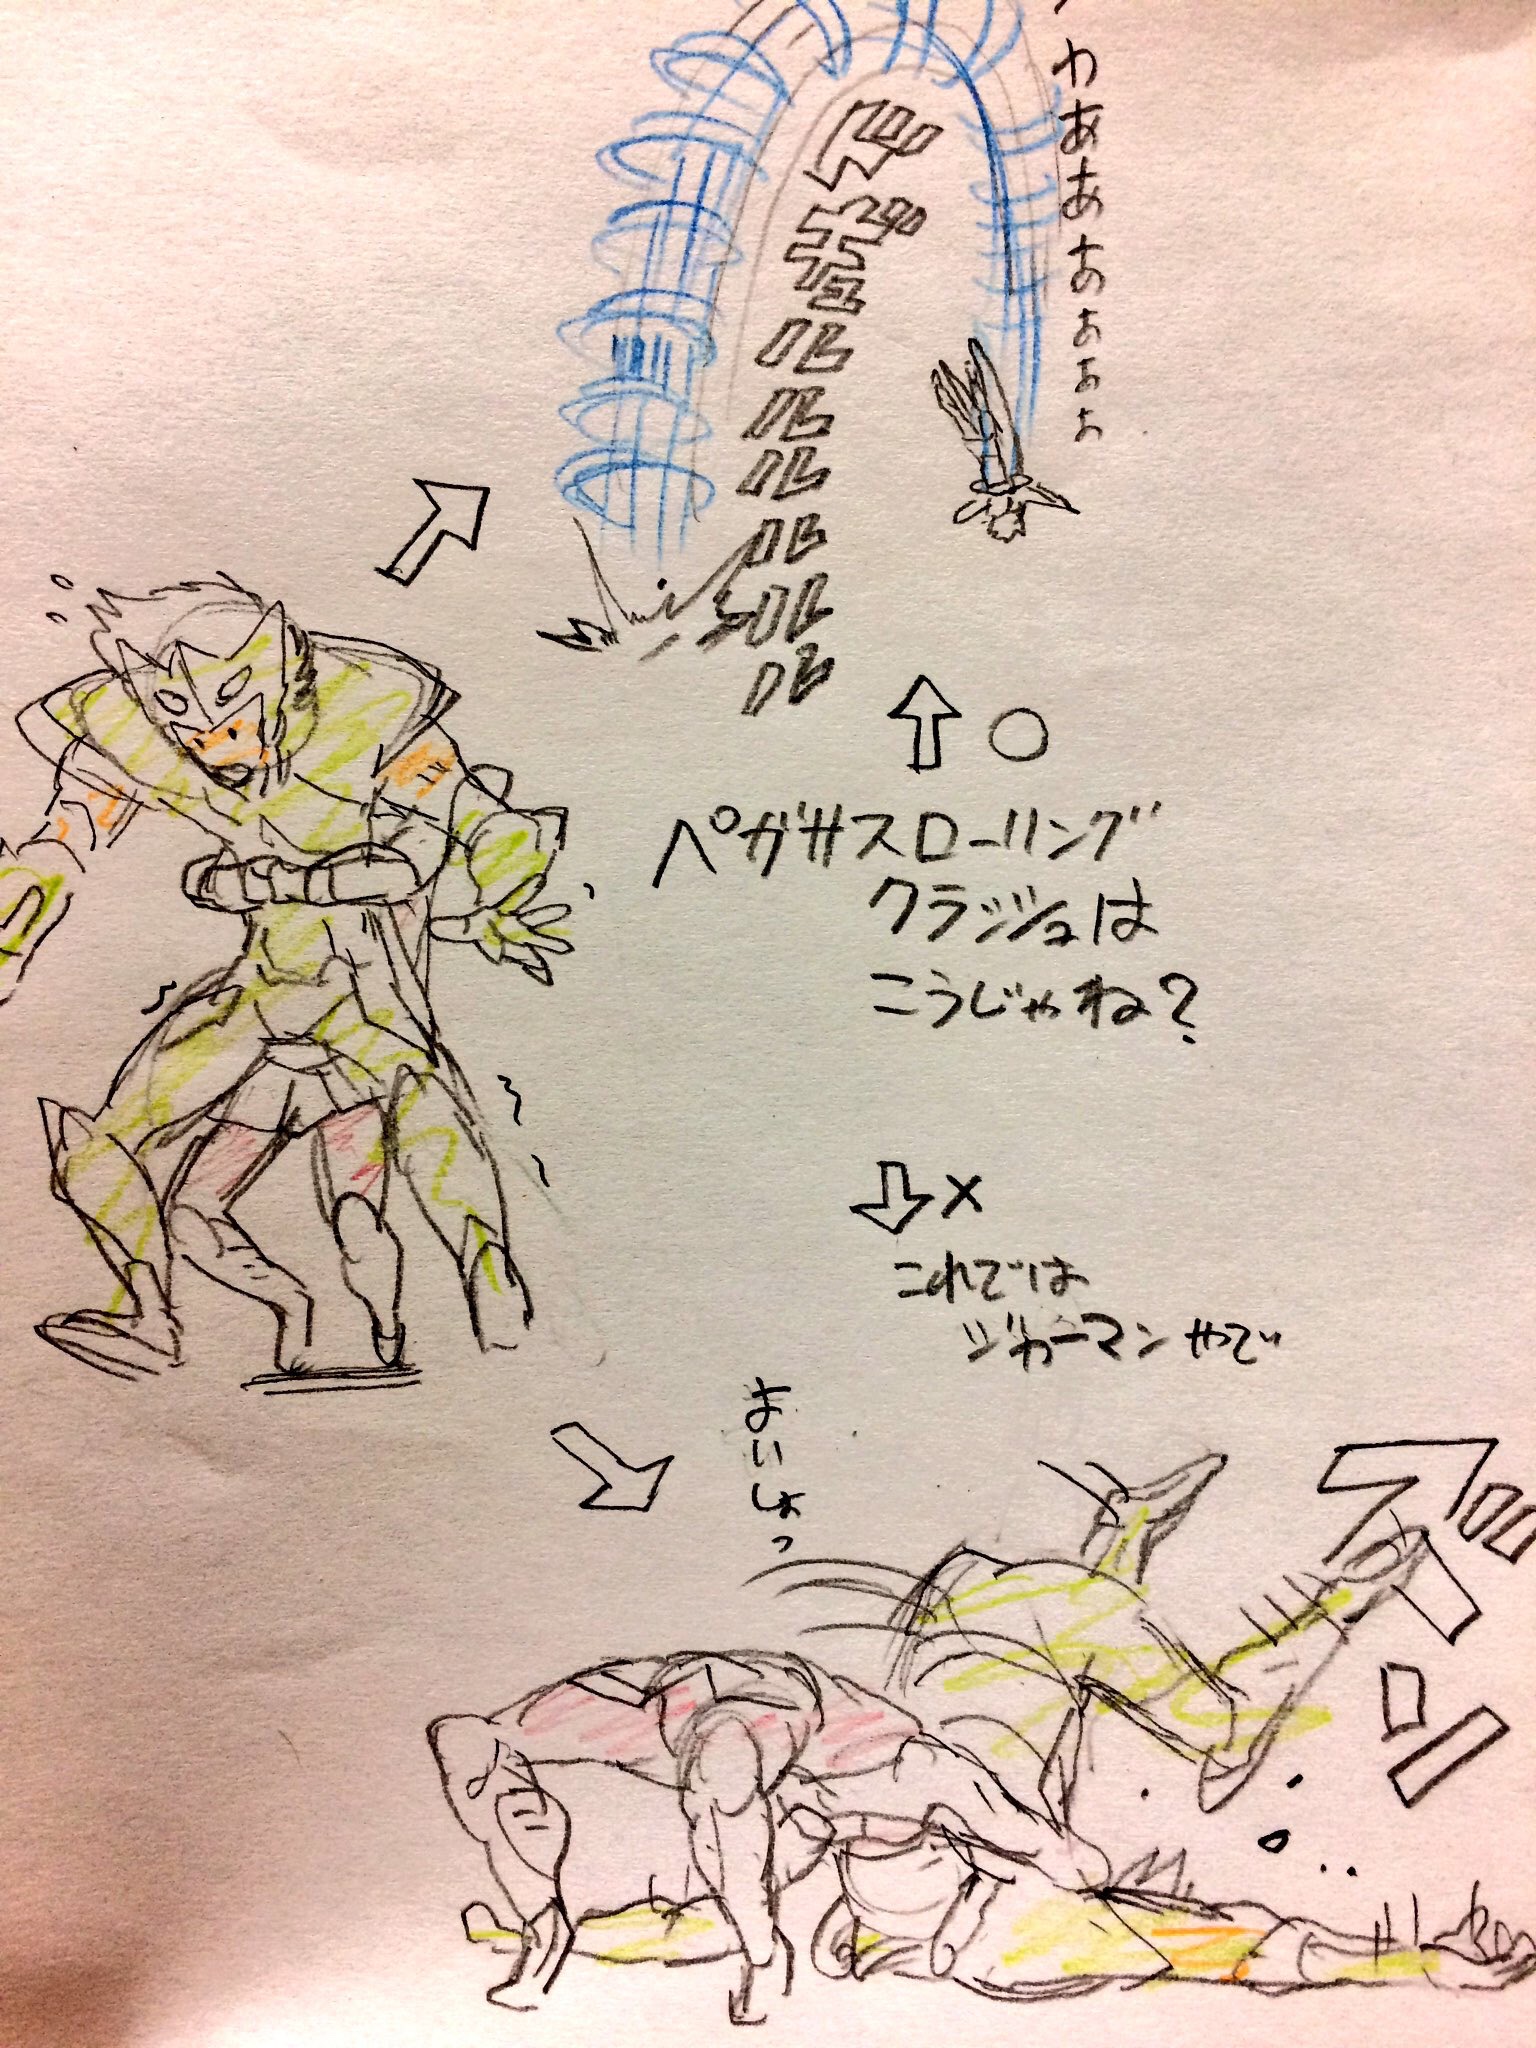 わあぁぁぁぁぁ
ドギュルルルルルル
ペガサスローリング
クラッシュは
こうじゃね?
これでは
ジャーマンやでい
よいしょっ
ズドン